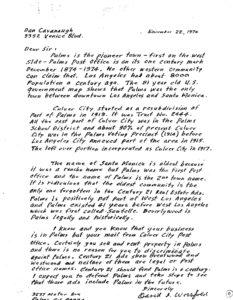 Dan Cavanaugh
9952 Venice Blvd.
November 22, 1976
Dear Sir:
Palms is the pioneer town - first on the west
side - Palms Post Office is on its one century mark
December 1876-1976. No other western community
can claim that. Los Angeles had about 8000
Population a Century ago. The 81 year old U.S.
Government map shows that Palms was the only
town between downtown Los Angeles and Santa Monica.
Culver City started as a resubdivision of
Part of Palms in 1913. It was Tract No. 2444.
All the east part of Culver City was in the Palms
School District and about 90% of present Culver
City was in the Palms Voting Precinct (1916) before
Los Angeles City Annexed part of the area in 1915.
The left over portion incorporated as Culver City in 1917.
The name of Santa Monica is oldest because
it was a rancho name but Palms was the first Post
Office and the name of Palms is the 2nd town name.
It is ridiculous that the oldest community is the
only one forgotten in the Century 21 Real Estate Ads.
Palms is positively not part of West Los Angeles
and Palms existed 21 years before West Los Angeles
which was first called Sawtelle. Beverlywood is
Palms legally and historically.
I know and you know that your business
is in Palms but your mail from Culver City Post
Office. Certainly you sell and rent property in Palms
and there is no reason for you to discriminate
against Palms. Century 21 Ads show Brentwood and
Westwood and neither of them are legal or Post
Office areas. Century 21 should find Palms in a century.
I expect you to defend Palms and take steps to see
that those ads include Palms in the future.
Sincerely
David J. Worsfold
3657 Motor Ave